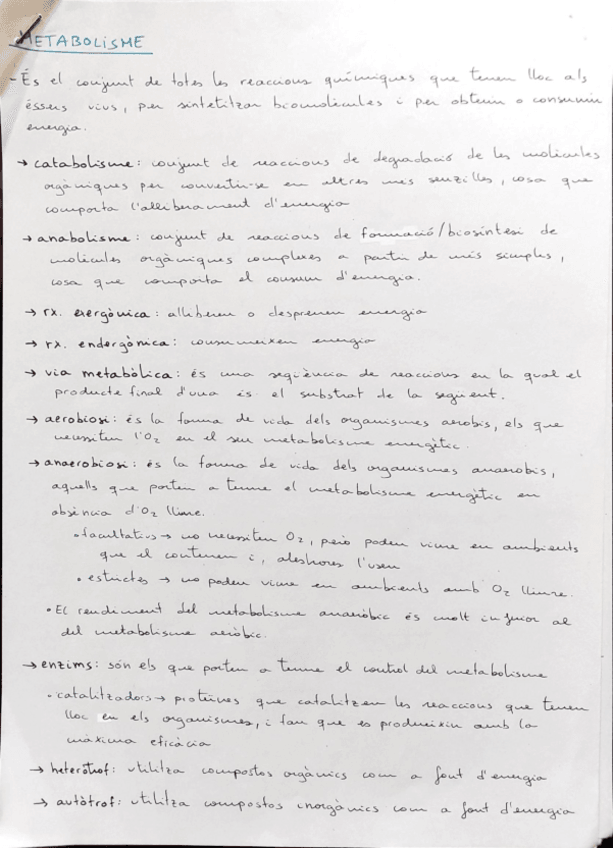 METABOLISME
- És el conjunt de totes les reaccions químiques que tenen lloc als
éssers vius, per sintetitzar biomolècules i per obtenir o consumir
energia.
→ catabolisme: conjunt de reaccions de degradació de les molècules
orgàniques per convertir-se en altres més senzilles, cosa que
comporta l'alliberament d'energia
→ anabolisme: conjunt de reaccions de formació/biosíntesi de
molècules orgàniques complexes a partir de més simples,
cosa que comporta el consum d'energia.
→ rx. exergònica: alliberen o desprenen energia
→ rx. endergònica: consumeixen energia
→ via metabòlica: és una seqüència de reaccions en la qual el
producte final d'una és el substrat de la següent.
→ aerobiosi: és la forma de vida dels organismes aerobis, els que
necessiten l'O₂ en el seu metabolisme energètic.
→ anaerobiosi: és la forma de vida dels organismes anaerobis,
aquells que porten a terme el metabolisme energètic en
absència d'O₂ lliure.
• facultatius → no necessiten O₂, però poden viure en ambients
que el contenen i, aleshores l'usen
• estrictes → no poden viure en ambients amb O₂ lliure.
• El rendiment del metabolisme anaeròbic és molt inferior al
del metabolisme aeròbic.
→ enzims: són els que porten a terme el control del metabolisme
• catalitzadors → proteïnes que catalitzen les reaccions que tenen
lloc en els organismes, i fan que es produeixin amb la
màxima eficàcia
→ heteròtrof: utilitza compostos orgànics com a font d'energia
→ autòtrof: utilitza compostos inorgànics com a font d'energia